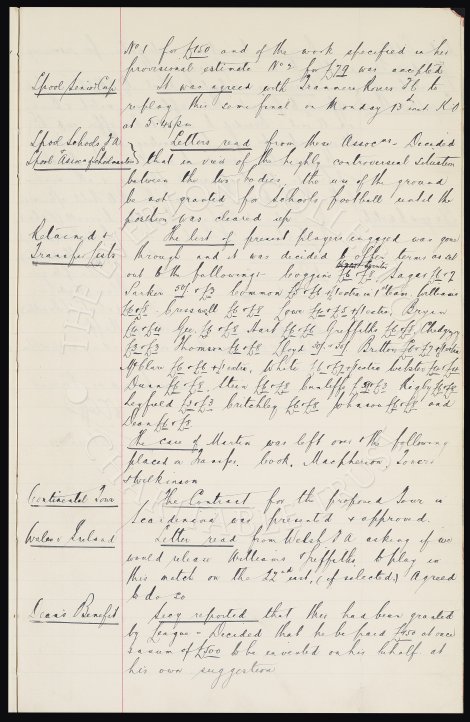 No 1 for £150 and of the work specified in his
provisional estimate No 3 for £79 was accepted
Lpool Senior Cup
It was agreed with Tranmere Rovers Fc to
replay this semi final on Monday 13th inst K.O
at 5.45pm
Lpool Schools F A
Lpool Assoc of Schoolmasters
Letters read from these Assocns - Decided
that in view of the highly controversial situation
between the two bodies, the use of the ground
be not granted for schools football until the
position was cleared up
Retained &
Transfer Lists
The list of present players engaged was gone
through and it was decided to offer terms as set
out to the following:- Coggins £6 & £8 Sagar £8 & 7
Parker 50/- & £3 Common
Cresswell £6 & £8 Lowe Bryan
Gee £6 & £8 Hart £6 & £6 Griffiths £6 & £8 Chedgzoy
£3 & £3 Thomson £6 & £8 Lloyd Britton £6 & £7
McClure £6 & £6 White £6 & £7 Webster
Dunn £6 & £8 Stein £6 & £8 Cunliffe Rigby £6 & £8
Leyfield £3 & £3 Critchley £6 & £8 Johnson £6 & £8 and
Dean £6 & £8
The case of Martin was left over & the following
placed on Transfer. book, Macpherson, Towers
& Wilkinson
Continental Tour
The Contract for the proposed Tour in
Scandinavia was presented & approved.
Wales v Ireland
Letter read from Welsh F A asking if we
would release Williams & Griffiths to play in
this match on the 22nd inst, (if selected) Agreed
to do so
Dean's Benefit
Secy reported that this had been granted
by League - Decided that he be paid £150 at once
& a sum of £500 to be invested on his behalf at
his own suggestion